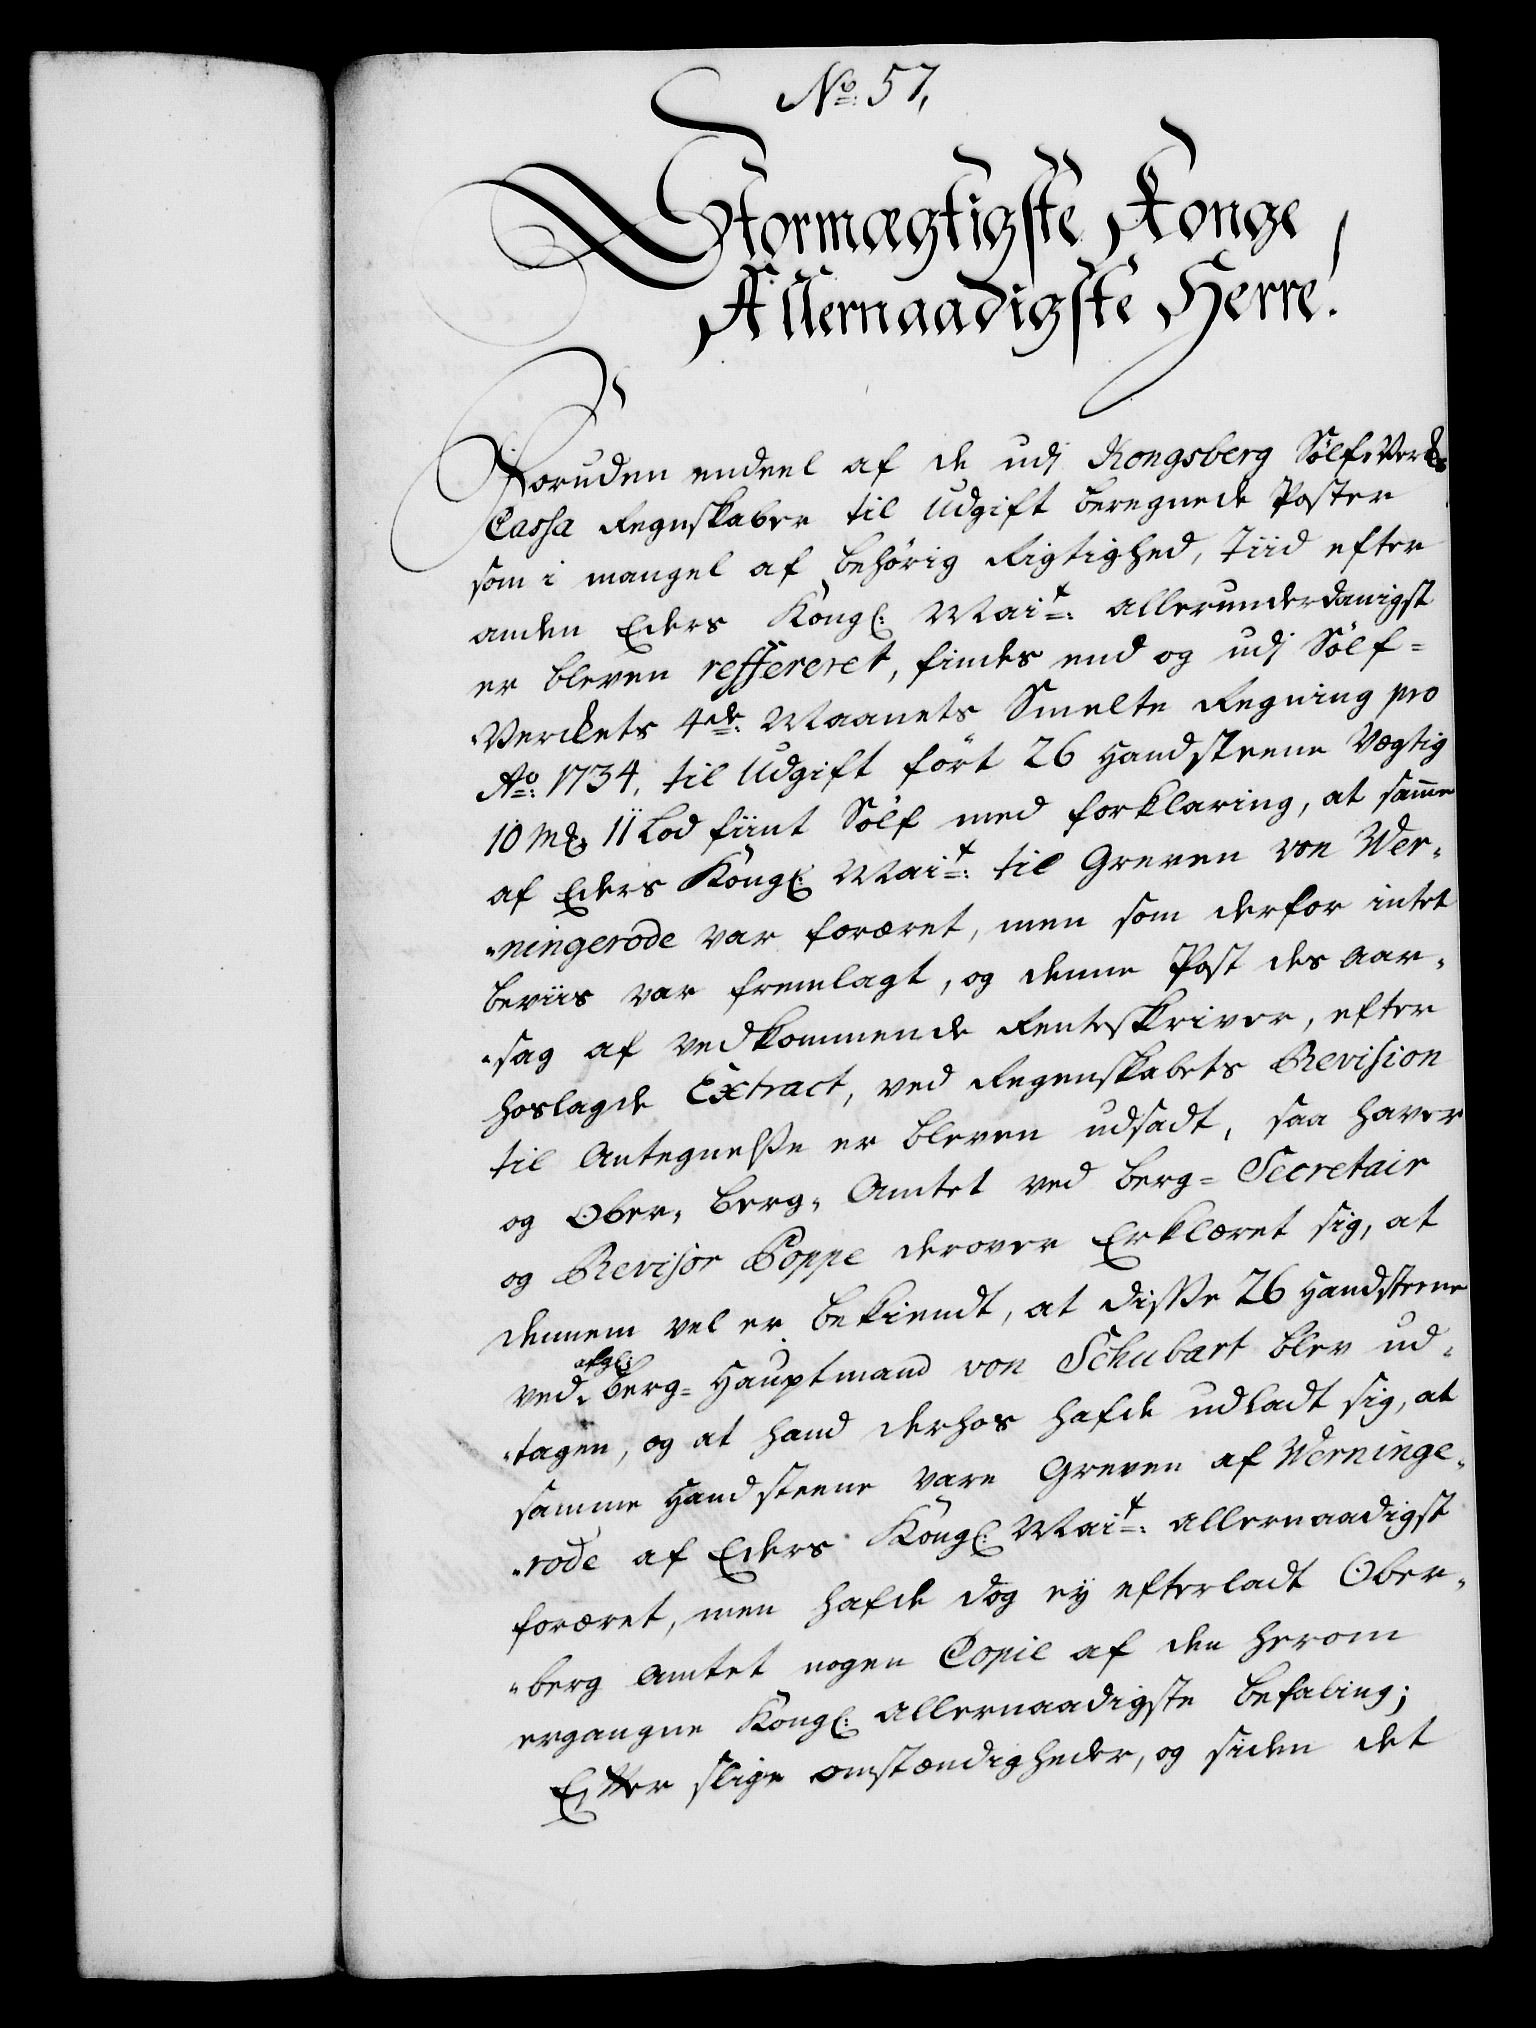 No: 57,
Stormægtigste Konge
Allernaadigste Herre!
Foruden endeel af de udj Kongsberg Sölf-Vercks
Cassa Regnskaber til Udgift beregnede Poster
som i mangel af behörig Rigtighed, Tiid efter
anden Eders Kongl: Mait: allerunderdanigst
er bleven reffereret, findes end og udj Sölf=
Verckets 4de: Maanets Smelte Regning pro
Ao: 1734, til Udgift fört 26 Handsteene Vægtig
10 Mk 11 Lod fiint Sölf med forklaring, at samme
af Eders Kongl: Mait: til Greven von Wer-
-ningerode var foræret, men som derfor intet
beviis var fremlagt, og denne Post des aar-
-sag af vedkommende Renteskriver, efter
hoslagde Extract, ved Regenskabets Revision
til Antegnelse er bleven udsadt, saa haver
og Ober- Berg- Amtet ved Berg= Secretair
og Revisor Poppe derover Erklæret sig, at
dennem vel er bekiendt, at disse 26 Handsteene
ved afgl: Berg= Hauptmand von Schubart blev ud-
-tagen, og at hand derhos hafde udladt sig, at
samme Handsteene vare Greven af Werninge-
-rode af Eders Kongl: Mait: allernaadigst
foræret, men hafde dog ej efterladt Ober-
-berg Amtet nogen Copie af den herom
ergangne Kongl: allernaadigste befaling;
Efter slige omstændigheder, og siden det